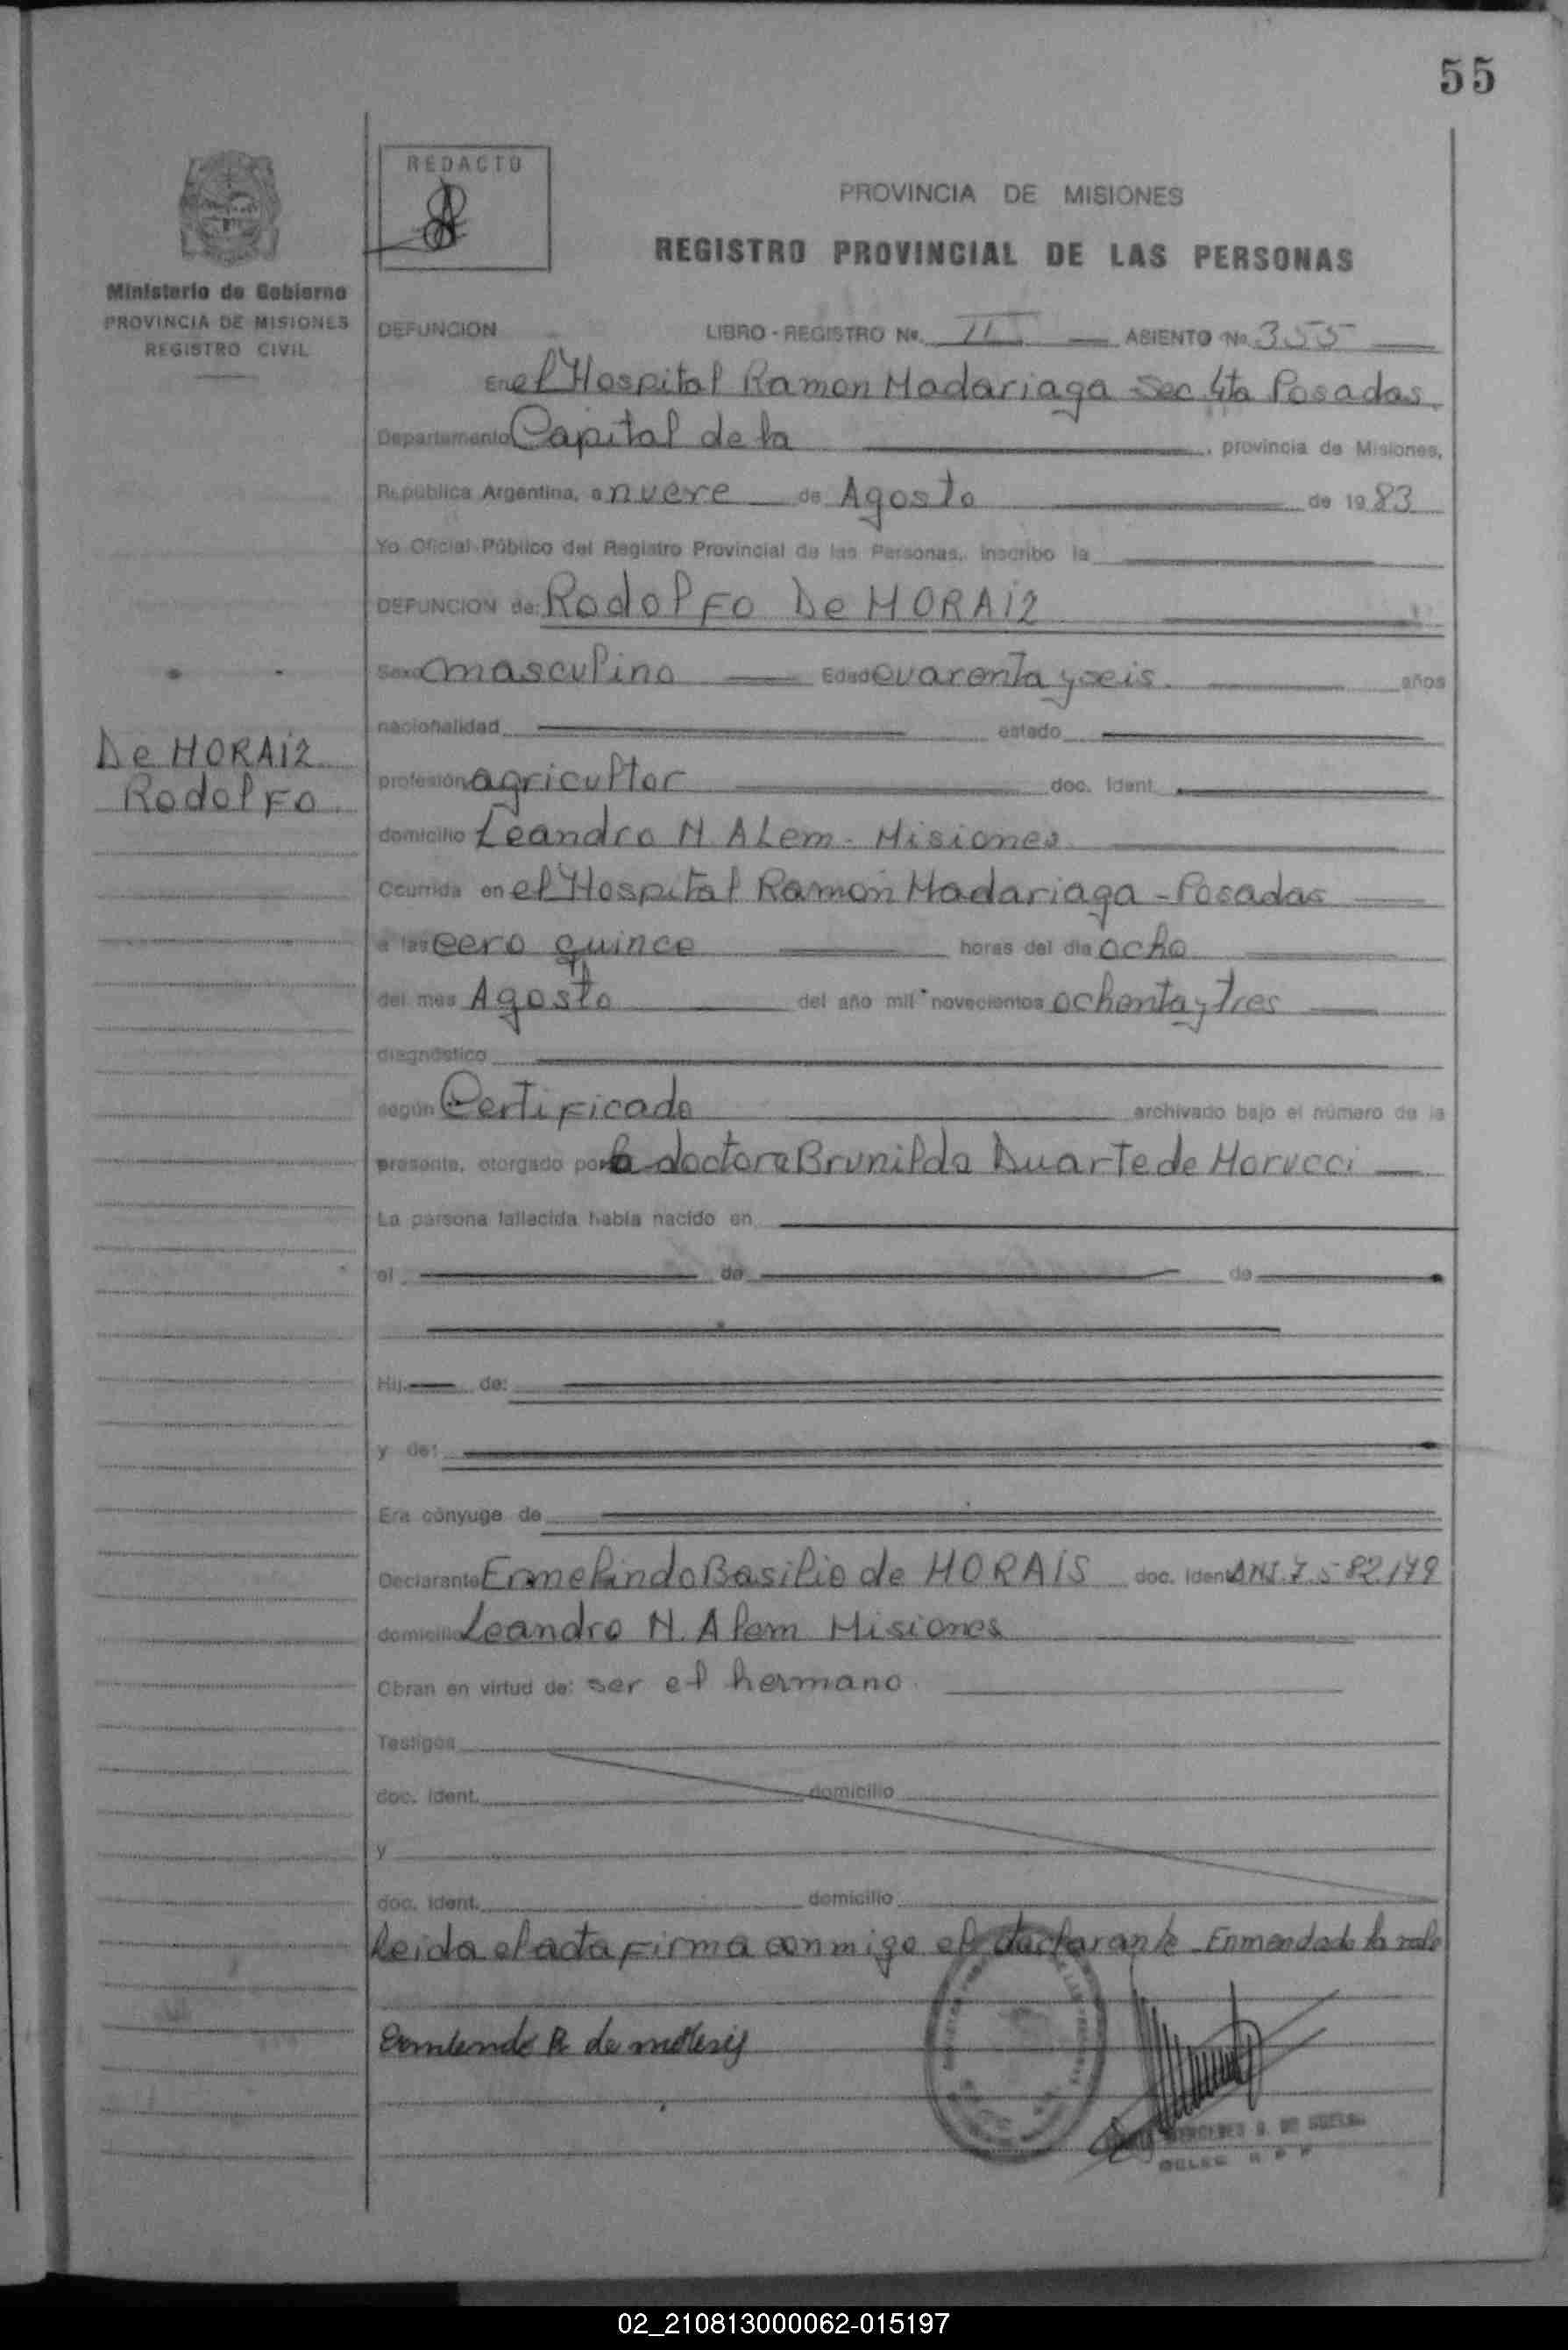 55
REDACTO
PROVINCIA DE MISIONES
REGISTRO PROVINCIAL DE LAS PERSONAS
Ministerio de Gobierno
PROVINCIA DE MISIONES
REGISTRO CIVIL
DEFUNCION LIBRO - REGISTRO No. III ASIENTO No. 355
En el Hospital Ramon Madariaga Sec 4ta Posadas
Departamento Capital de la , provincia de Misiones,
República Argentina, a nueve de Agosto de 1983
Yo Oficial Público del Registro Provincial de las Personas, inscribo la
DEFUNCION de: Rodolfo De MORAIZ
Sexo masculino Edad cuarenta y seis años
nacionalidad estado
De MORAIZ
Rodolfo
profesión agricultor doc. Ident.
domicilio Leandro N. Alem - Misiones
Ocurrida en el Hospital Ramon Madariaga - Posadas
a las cero quince horas del día ocho
del mes Agosto del año mil novecientos ochenta y tres
diagnóstico
según Certificado archivado bajo el número de la
presente, otorgado por la doctora Brunilda Duarte de Morucci
La persona fallecida había nacido en
el de de
Hij de:
y de:
Era cónyuge de
Declarante Ermelindo Basilio de MORAIS doc. Ident. DNI. 7.582.179
domicilio Leandro N. Alem Misiones
Obran en virtud de: ser el hermano.
Testigos
doc. Ident. domicilio
y
doc. Ident. domicilio
Leida el acta firma conmigo el declarante - Enmendado la vale
de
02_210813000062-015197